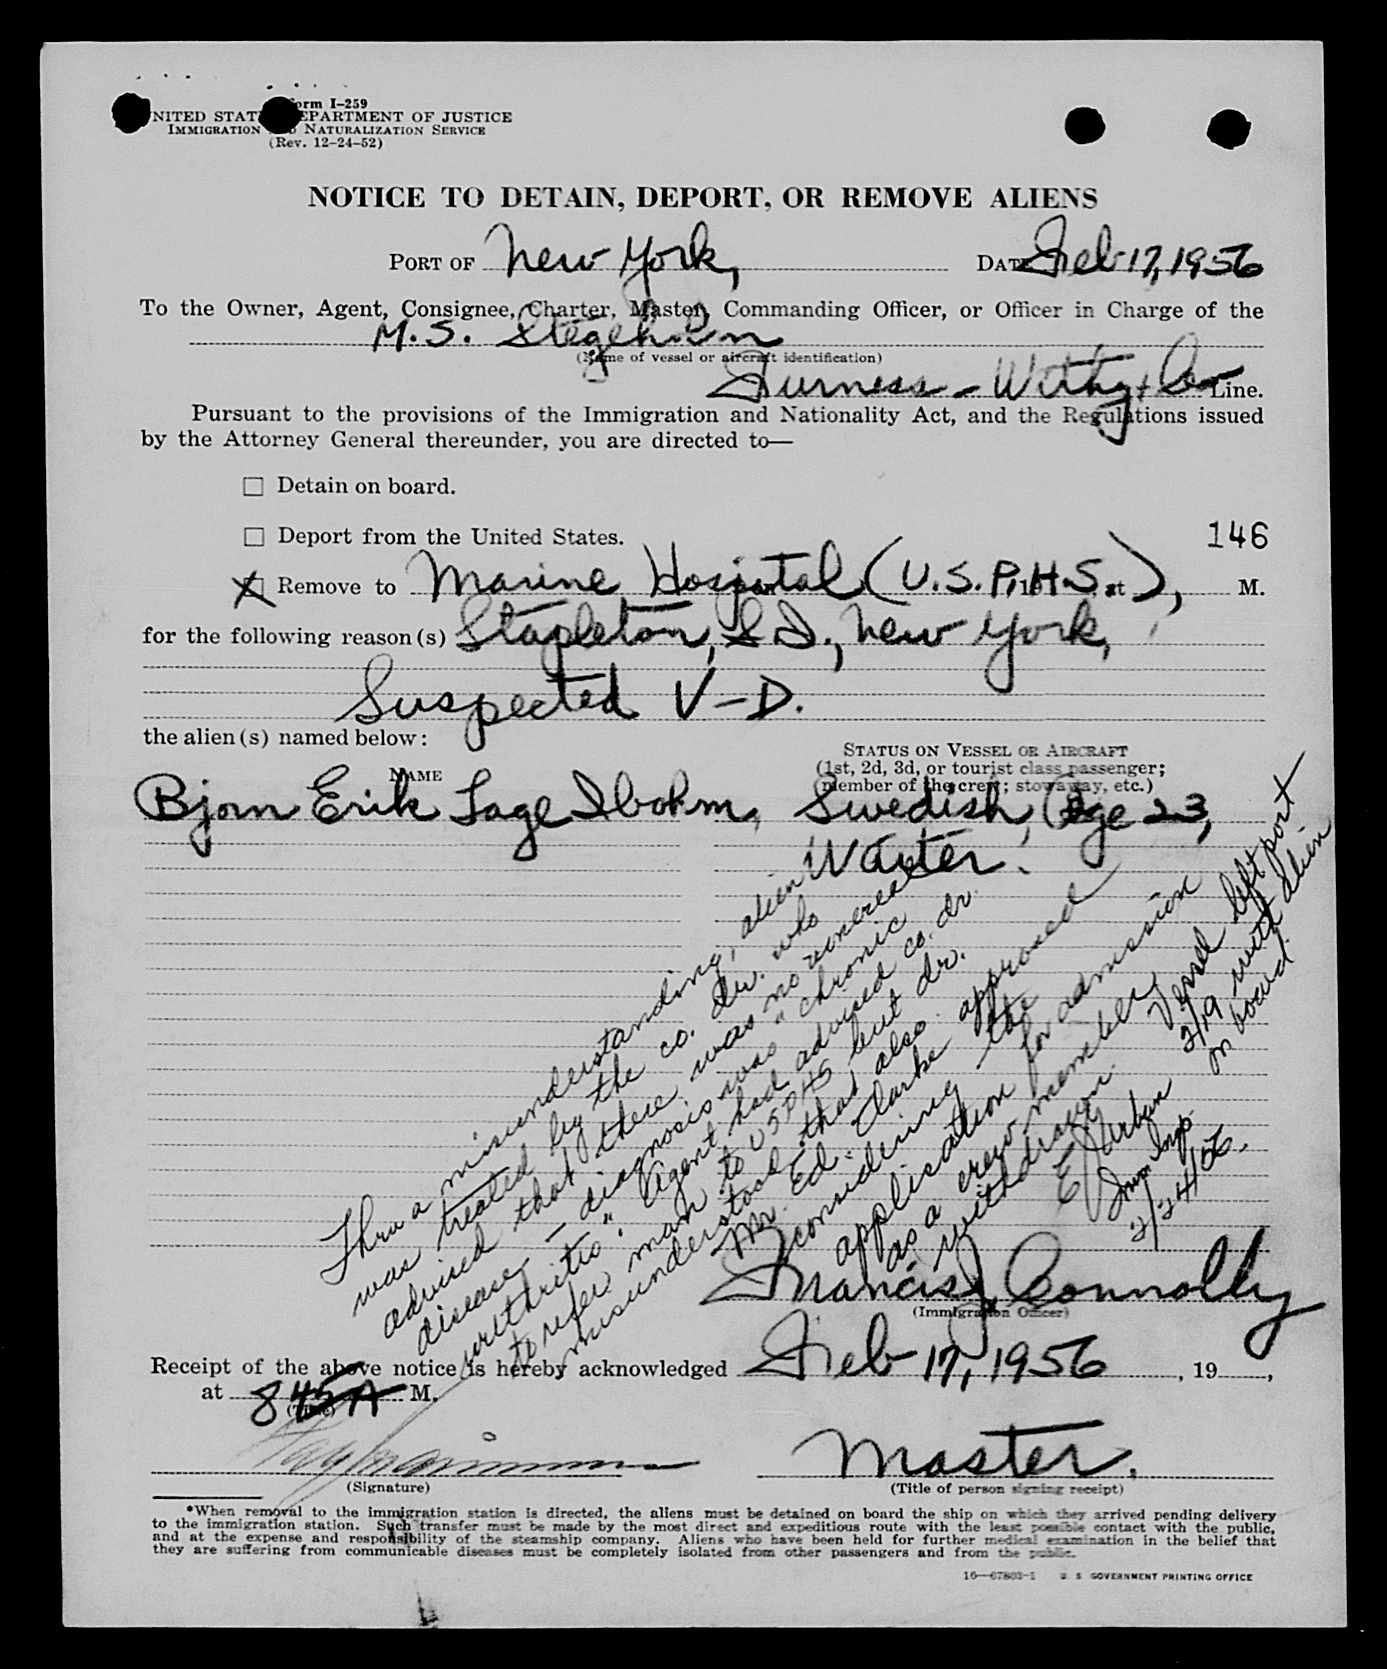 Form I-259
UNITED STATES DEPARTMENT OF JUSTICE
IMMIGRATION AND NATURALIZATION SERVICE
(Rev. 12-24-52)
NOTICE TO DETAIN, DEPORT, OR REMOVE ALIENS
PORT OF New York, DATE Feb 17, 1956
To the Owner, Agent, Consignee, Charter, Master, Commanding Officer, or Officer in Charge of the
M.S. Stegeholm
(Name of vessel or aircraft identification)
Furness - Withy & Co Line.
Pursuant to the provisions of the Immigration and Nationality Act, and the Regulations issued
by the Attorney General thereunder, you are directed to—
☐ Detain on board.
☐ Deport from the United States.
146
☒ Remove to Marine Hospital (U.S.P.H.S.), at M.
for the following reason(s) Stapleton, S.I., New York,
Suspected V-D.
the alien(s) named below:
NAME
STATUS ON VESSEL OR AIRCRAFT
(1st, 2d, 3d, or tourist class passenger;
member of the crew; stowaway, etc.)
Bjorn Erik Tage Ibohm, Swedish, Age 23,
Waiter.
Thru a misunderstanding, alien
was treated by the co. dr. who
advised that there was no venereal
disease - diagnosis was "chronic
urithritis". Agent had advised co. dr.
to refer man to USPHS but dr.
misunderstood that also.
Mr. Ed. Clarke approved
considering the
application for admission
as a crew member
withdrawn.
E J Urban
Imm Insp.
2/24/56.
Vessel left port
2/19 with alien
on board.
Francis J. Connolly
(Immigration Officer)
Receipt of the above notice is hereby acknowledged Feb 17, 1956, 19 ,
at 8 45 A M.
(Time)
Master.
(Signature) (Title of person signing receipt)
*When removal to the immigration station is directed, the aliens must be detained on board the ship on which they arrived pending delivery
to the immigration station. Such transfer must be made by the most direct and expeditious route with the least possible contact with the public,
and at the expense and responsibility of the steamship company. Aliens who have been held for further medical examination in the belief that
they are suffering from communicable diseases must be completely isolated from other passengers and from the public.
16—67803-1 U. S. GOVERNMENT PRINTING OFFICE